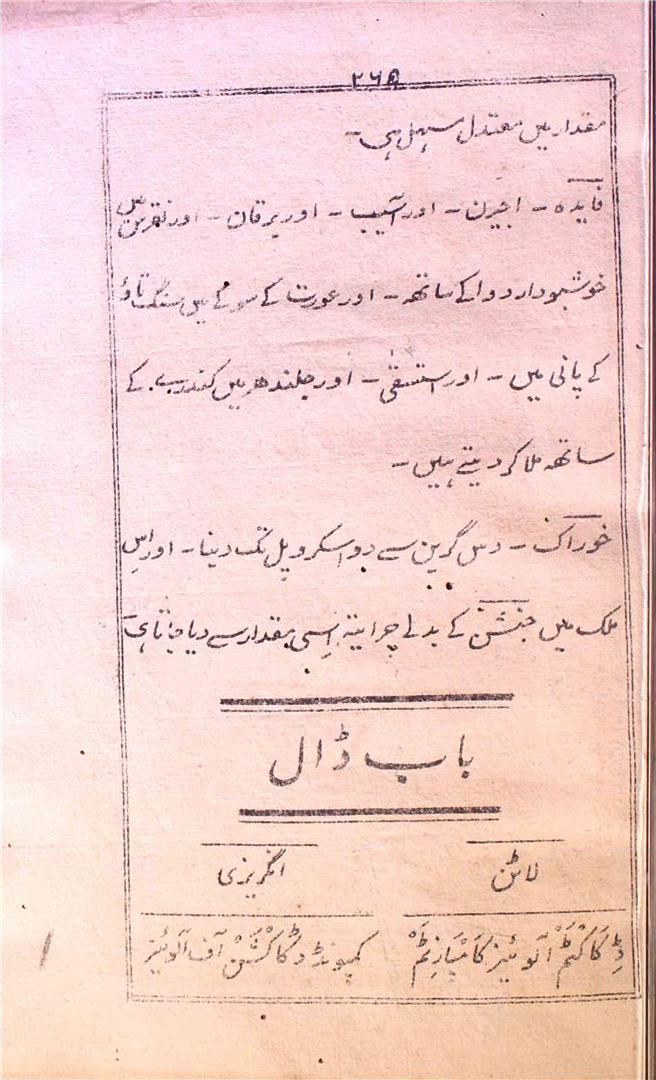 ۲۶۵
مقدار میں معتدل مسہل ہی۔
فایدہ۔ اجیرن۔ اور آسیب۔ اور یرقان۔ اور نقرس میں
خوشبودار دوا کے ساتھہ۔ اور عورت کے سوکے میں
کے پانی میں۔ اور استسقیٰ۔ اور جلندھر میں کے
ساتھہ ملا کر دیتے ہیں۔
خوراک۔ دس گرین سے دو اسکروپل تک دینا۔ اور اس
ملک میں جنشن کے بدلے چرایتہ اِسی مقدار سے دیا جاتا ہی
باب ڈال
لاٹن انگریزی
ڈِکَاکْٹَمْ آلوئیز کَامْپَازِٹَمْ کمپونڈ ڈکاکْشَنْ آف آلوئیز